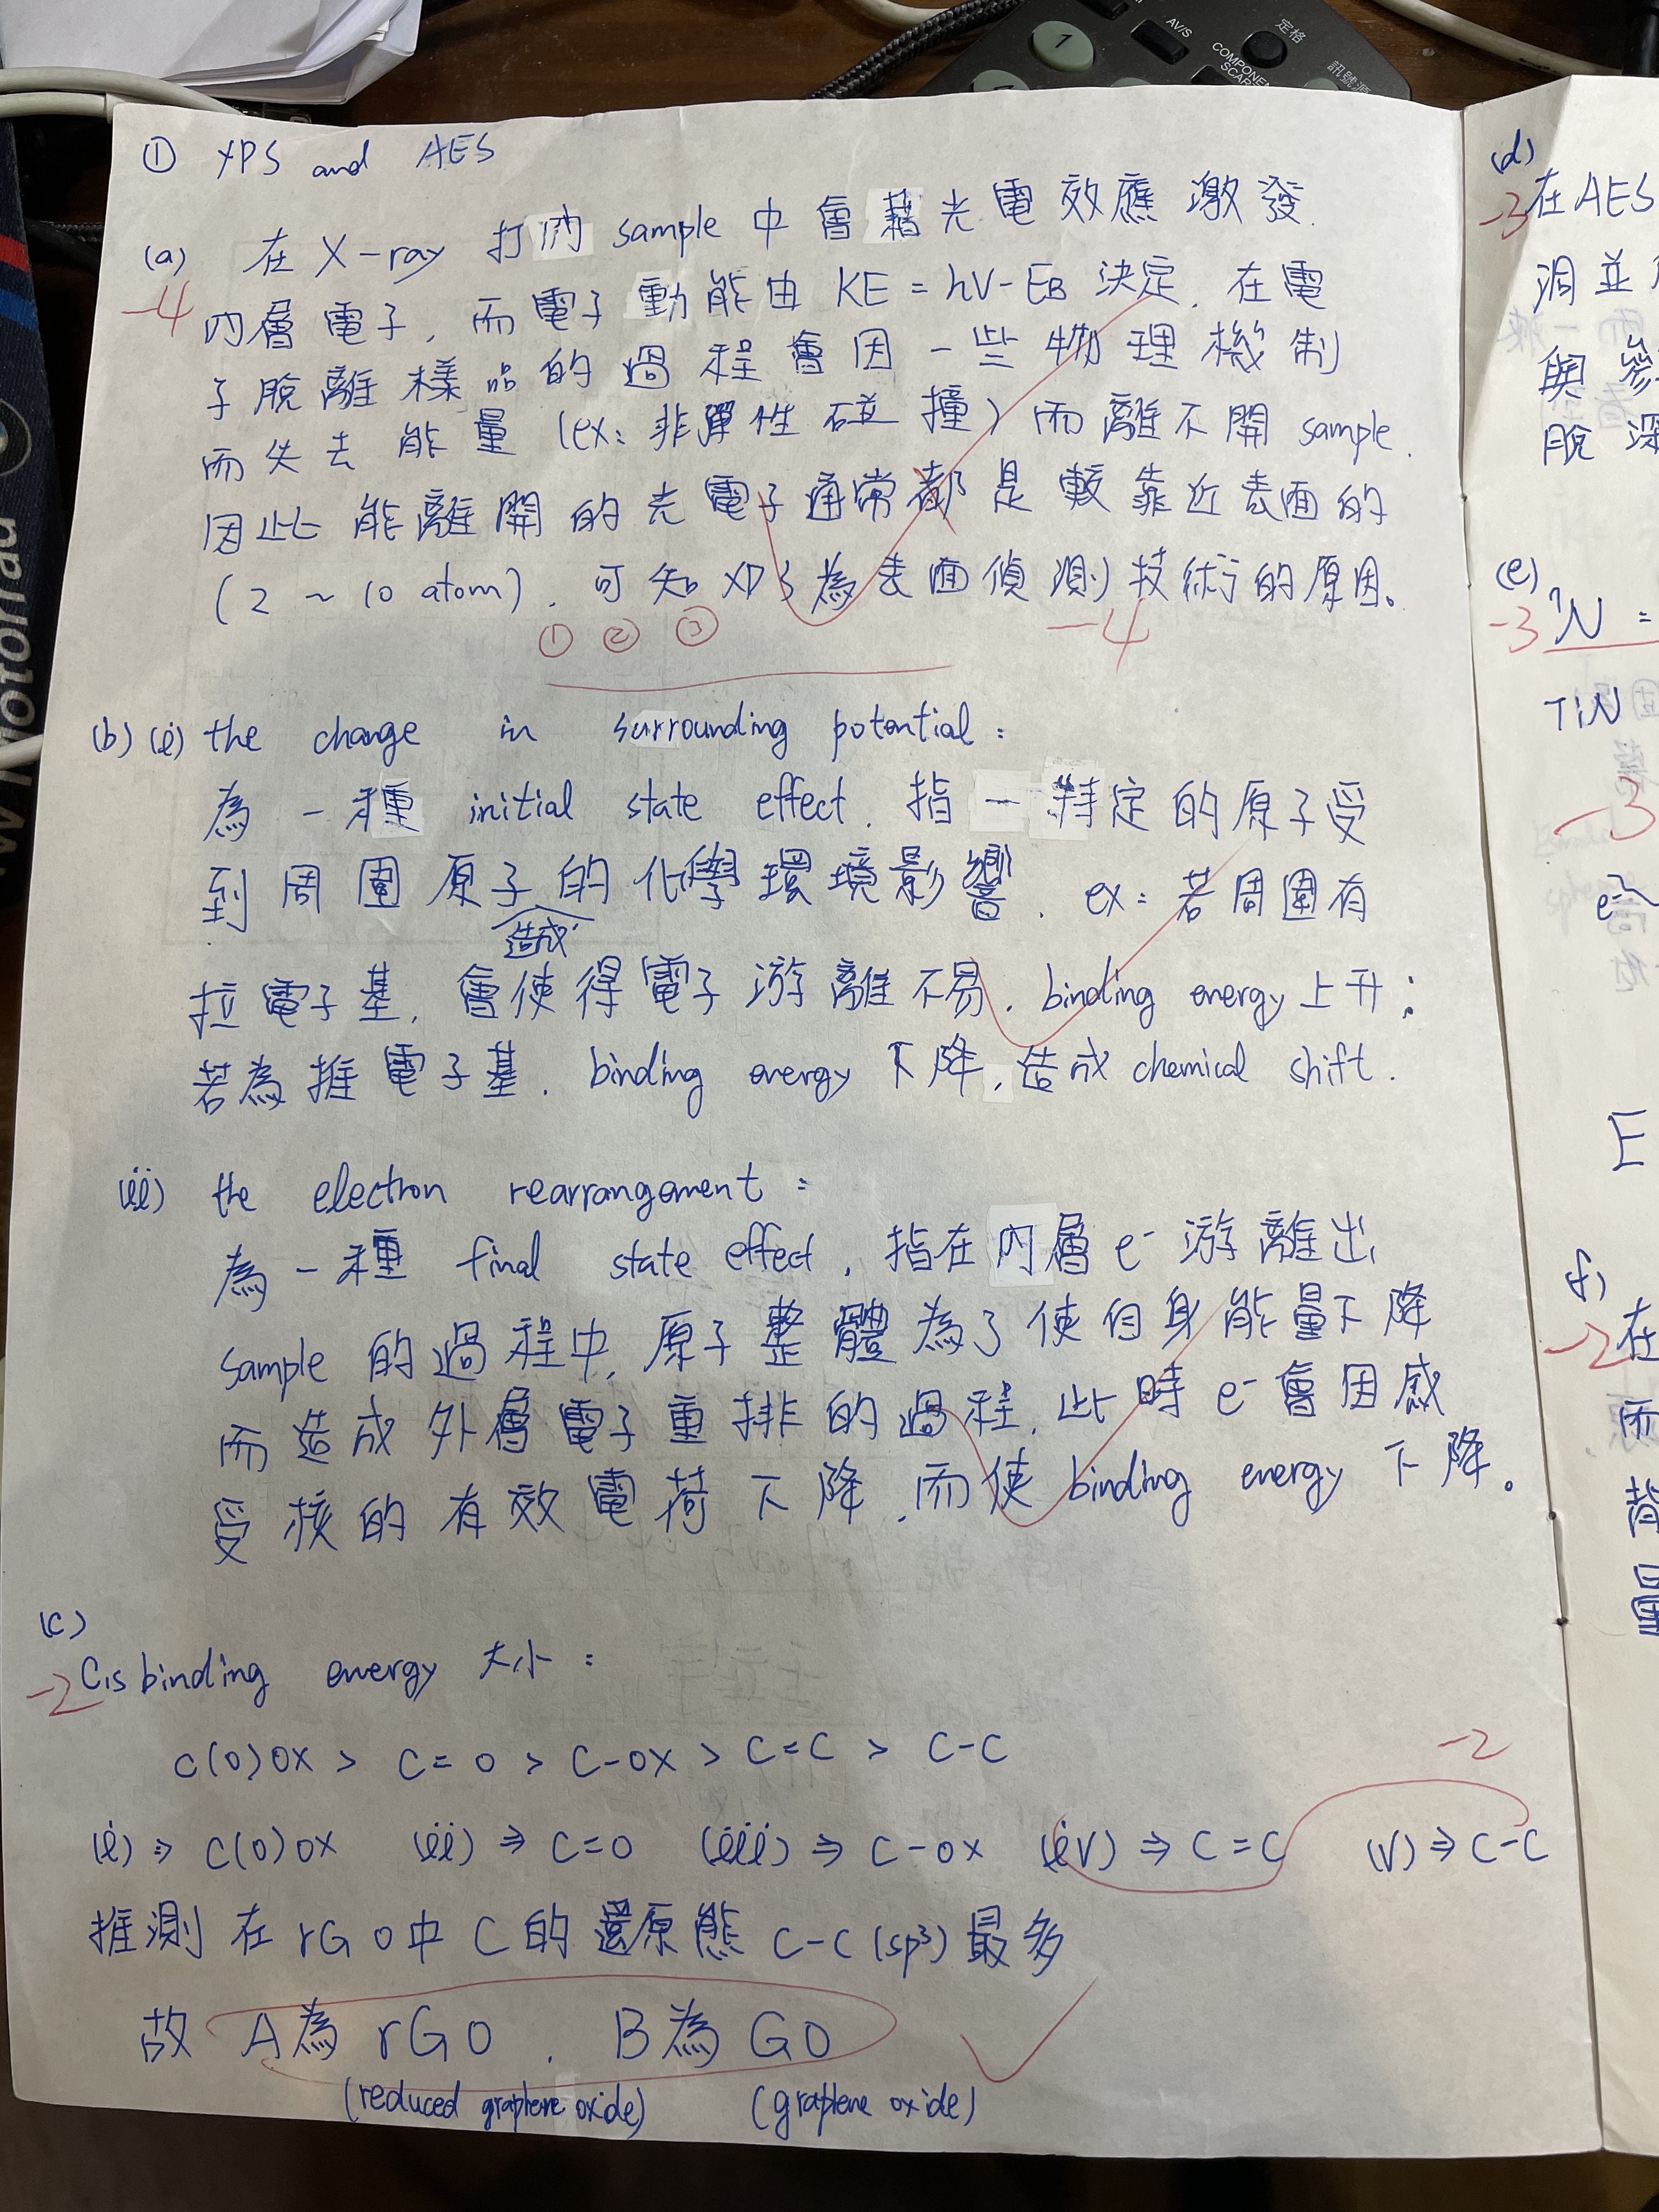 1
AV/S
COMPONENT
SCART
定格
訊號源
① XPS and AES
(a) 在 X-ray 打內 sample 中會藉光電效應激發.
-4
內層電子, 而電子動能由 KE = hν-EB 決定. 在電
子脫離樣品的過程會因一些物理機制
而失去能量 (ex: 非彈性碰撞) 而離不開 sample.
因此能離開的光電子通常都是較靠近表面的
(2 ~ 10 atom). 可知 XPS 為表面偵測技術的原因。
① ② ③ -4
(b) (i) the change in surrounding potential :
為一種 initial state effect. 指一特定的原子受
到周圍原子的化學環境影響. ex: 若周圍有
造成
拉電子基, 會使得電子游離不易. binding energy 上升;
若為推電子基. binding energy 下降, 造成 chemical shift.
(ii) the electron rearrangement :
為一種 final state effect, 指在內層 e- 游離出
sample 的過程中, 原子整體為了使自身能量下降
而造成外層電子重排的過程. 此時 e- 會因感
受核的有效電荷下降, 而使 binding energy 下降。
(c)
-2 C1s binding energy 大小 :
C(O)OX > C=O > C-OX > C=C > C-C
-2
(i) ⇒ C(O)OX (ii) ⇒ C=O (iii) ⇒ C-OX (iv) ⇒ C=C (v) ⇒ C-C
推測在 rGO 中 C 的還原態 C-C (sp3) 最多
故 A 為 rGO. B 為 GO
(reduced graphene oxide) (graphene oxide)
(d)
-3 在 AES
洞並
與參
脫深
(e)
-3 N =
TiN
-3
E
(f)
-2 在
而
背
量